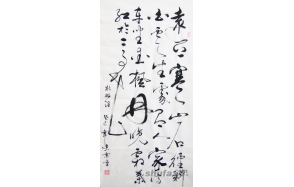 遠上寒山石徑斜
白雲生處有人家停
車坐愛楓林晚霜葉
紅於二月花
杜牧詩